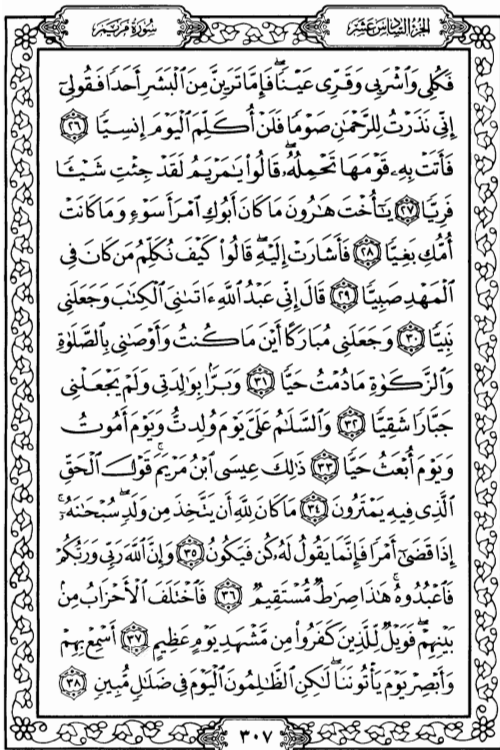 الجزء السادس عشر
سورة مريم
فَكُلِي وَاشْرَبِي وَقَرِّي عَيْنًا ۖ فَإِمَّا تَرَيِنَّ مِنَ الْبَشَرِ أَحَدًا فَقُولِي
إِنِّي نَذَرْتُ لِلرَّحْمَٰنِ صَوْمًا فَلَنْ أُكَلِّمَ الْيَوْمَ إِنسِيًّا ٢٦
فَأَتَتْ بِهِ قَوْمَهَا تَحْمِلُهُ ۖ قَالُوا يَٰمَرْيَمُ لَقَدْ جِئْتِ شَيْـًٔا
فَرِيًّا ٢٧ يَٰٓأُخْتَ هَٰرُونَ مَا كَانَ أَبُوكِ امْرَأَ سَوْءٍ وَمَا كَانَتْ
أُمُّكِ بَغِيًّا ٢٨ فَأَشَارَتْ إِلَيْهِ ۖ قَالُوا كَيْفَ نُكَلِّمُ مَن كَانَ فِي
الْمَهْدِ صَبِيًّا ٢٩ قَالَ إِنِّي عَبْدُ اللَّهِ ءَاتَىٰنِيَ الْكِتَٰبَ وَجَعَلَنِي
نَبِيًّا ٣٠ وَجَعَلَنِي مُبَارَكًا أَيْنَ مَا كُنتُ وَأَوْصَٰنِي بِالصَّلَوٰةِ
وَالزَّكَوٰةِ مَا دُمْتُ حَيًّا ٣١ وَبَرًّا بِوَٰلِدَتِي وَلَمْ يَجْعَلْنِي
جَبَّارًا شَقِيًّا ٣٢ وَالسَّلَٰمُ عَلَيَّ يَوْمَ وُلِدتُّ وَيَوْمَ أَمُوتُ
وَيَوْمَ أُبْعَثُ حَيًّا ٣٣ ذَٰلِكَ عِيسَى ابْنُ مَرْيَمَ ۚ قَوْلَ الْحَقِّ
الَّذِي فِيهِ يَمْتَرُونَ ٣٤ مَا كَانَ لِلَّهِ أَن يَتَّخِذَ مِن وَلَدٍ ۖ سُبْحَٰنَهُ ۚ
إِذَا قَضَىٰٓ أَمْرًا فَإِنَّمَا يَقُولُ لَهُ كُن فَيَكُونُ ٣٥ وَإِنَّ اللَّهَ رَبِّي وَرَبُّكُمْ
فَاعْبُدُوهُ ۚ هَٰذَا صِرَٰطٌ مُّسْتَقِيمٌ ٣٦ فَاخْتَلَفَ الْأَحْزَابُ مِنۢ
بَيْنِهِمْ ۖ فَوَيْلٌ لِّلَّذِينَ كَفَرُوا مِن مَّشْهَدِ يَوْمٍ عَظِيمٍ ٣٧ أَسْمِعْ بِهِمْ
وَأَبْصِرْ يَوْمَ يَأْتُونَنَا ۖ لَٰكِنِ الظَّٰلِمُونَ الْيَوْمَ فِي ضَلَٰلٍ مُّبِينٍ ٣٨
٣٠٧